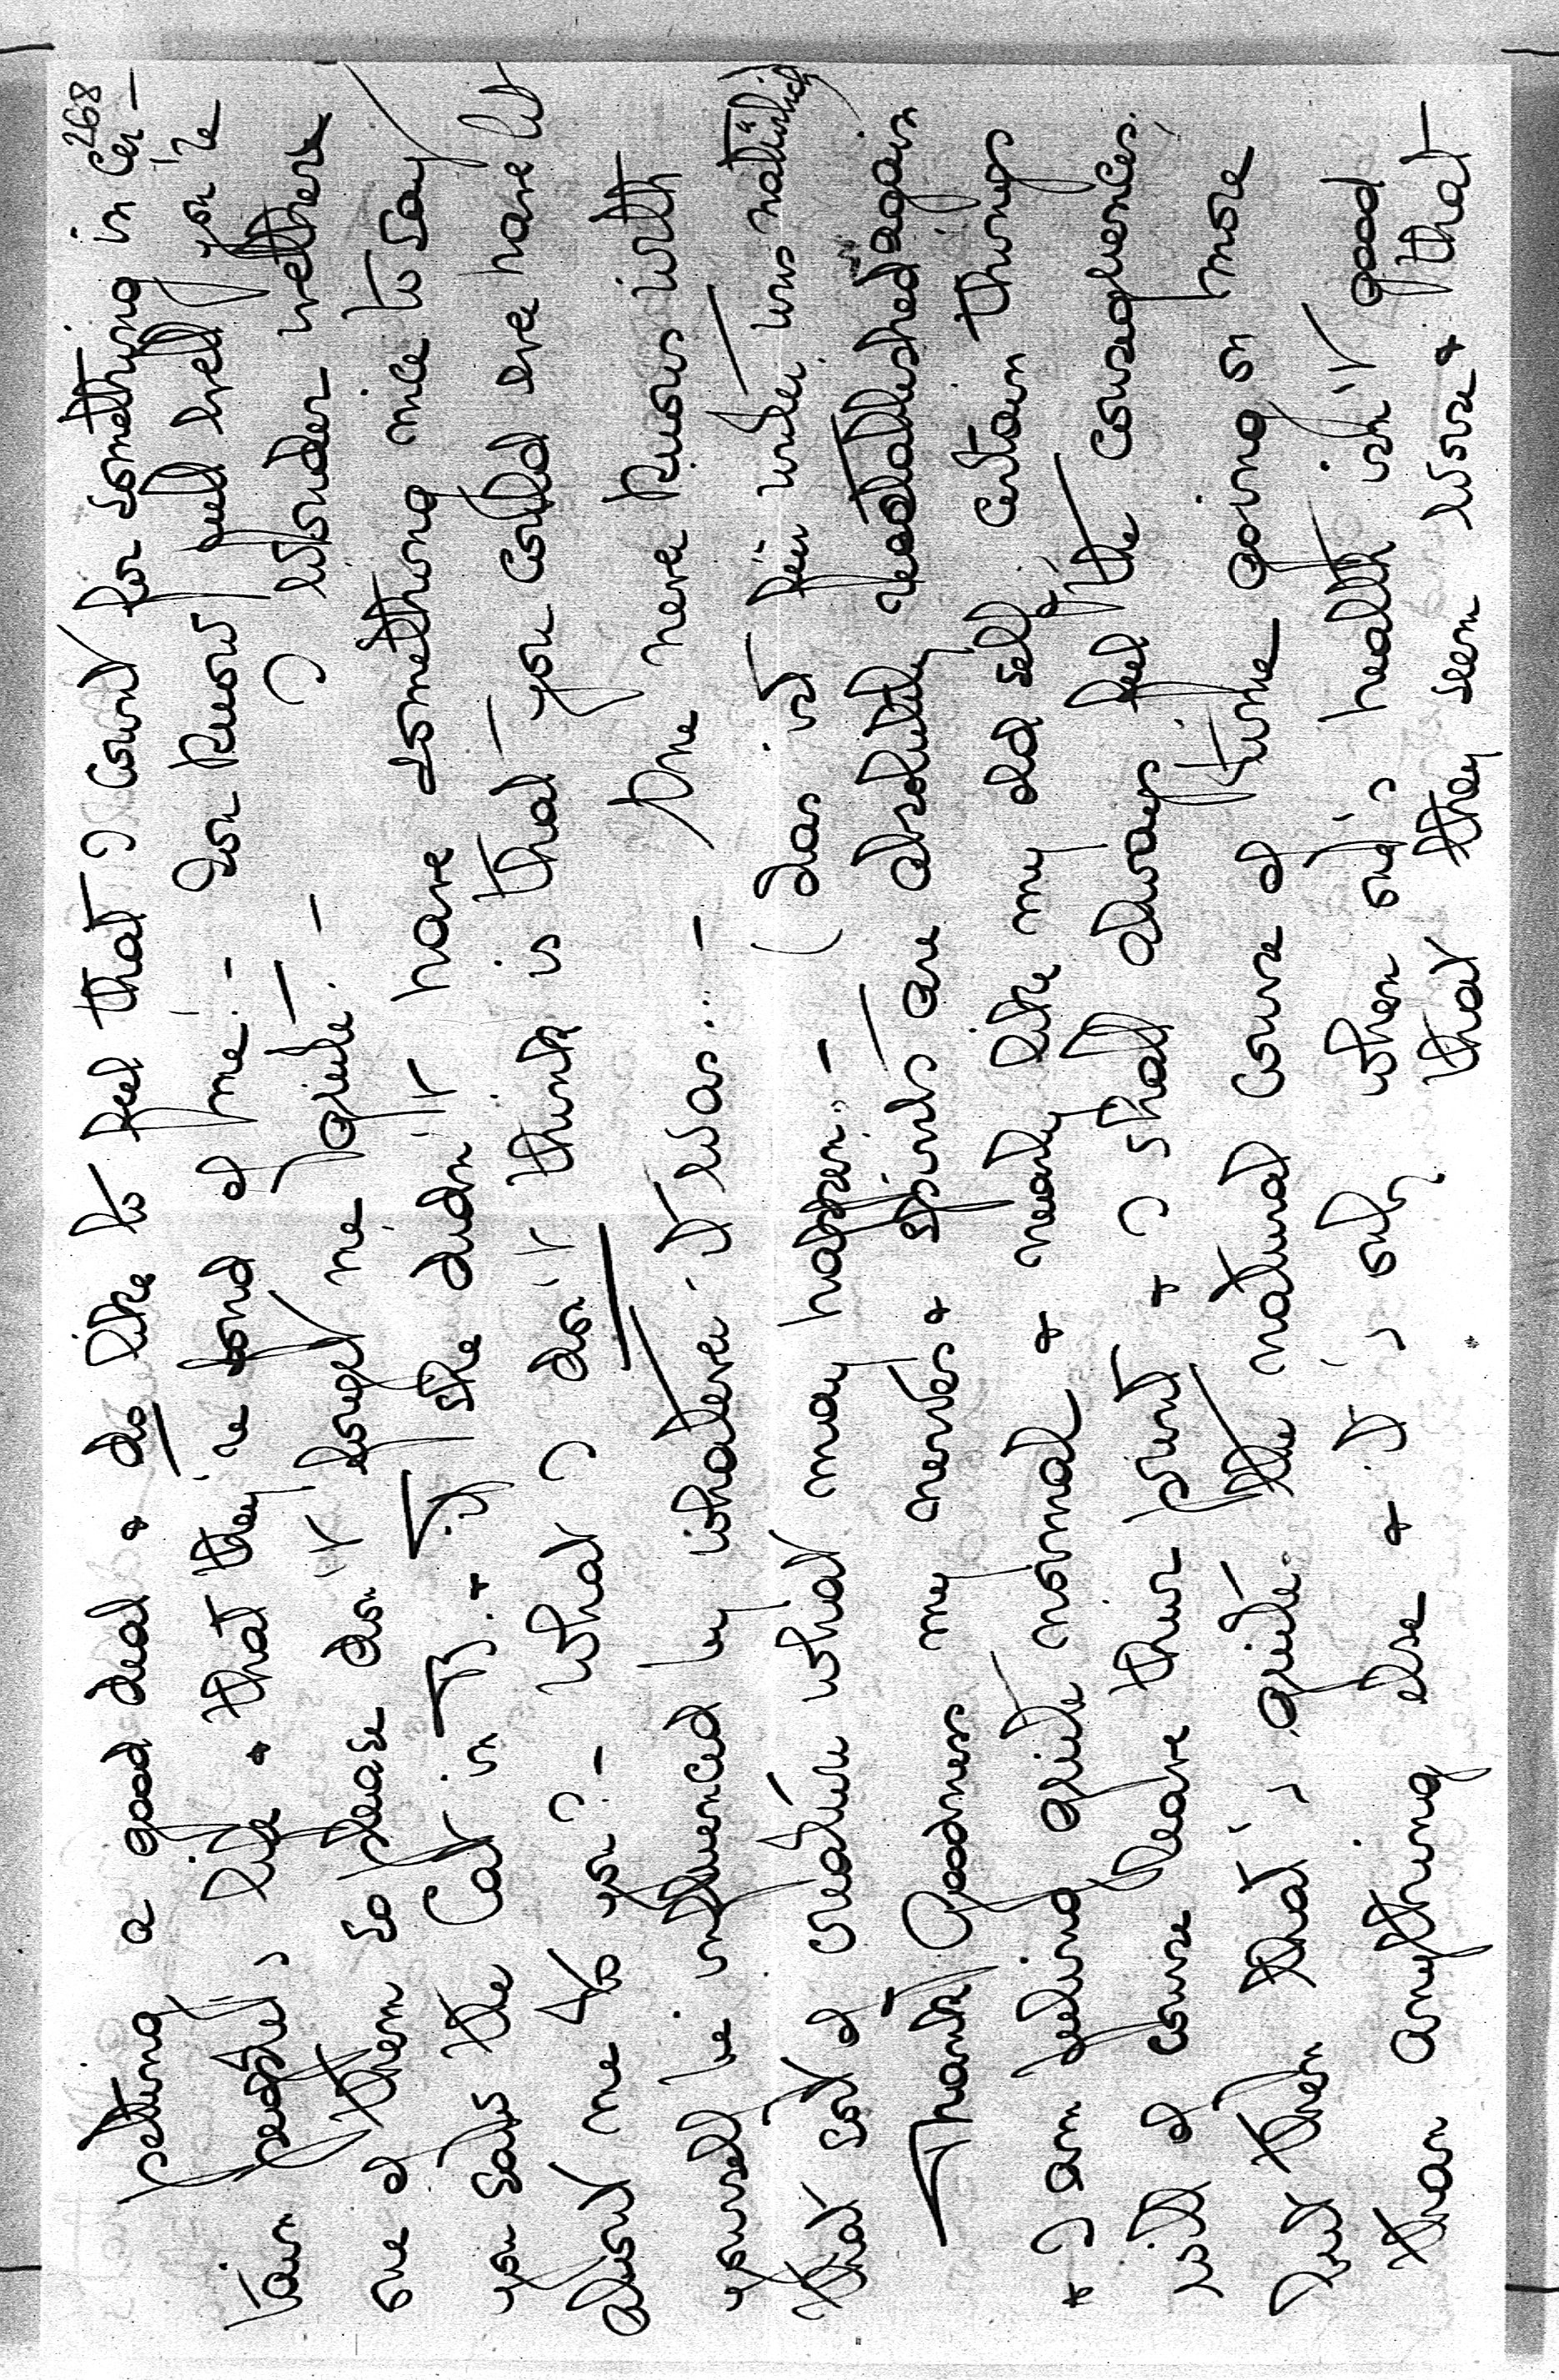 268
petting a good deal & do like to feel that I count for something in cer-
tain people's life & that they're fond of me. - You know full well you're
one of them so please don't forget me quite! - I wonder whether
you saw the Cat in T. & if she didn't have something nice to say
about me to you? - What I don't think is that you could ever have let
yourself be influenced by whatever it was... - One never knows with
that sort of creature what may happen. - (das ist für unter uns natürlich)
Thank Goodness my nerves & spirits are absolutely reestablished again
& I am feeling quite normal & nearly like my old self; certain things
will of course leave their point & I shall always feel the consequences.
But then that's quite the natural course of time going on more
than anything else & it's only when one's health isn't good
that they seem worse & that